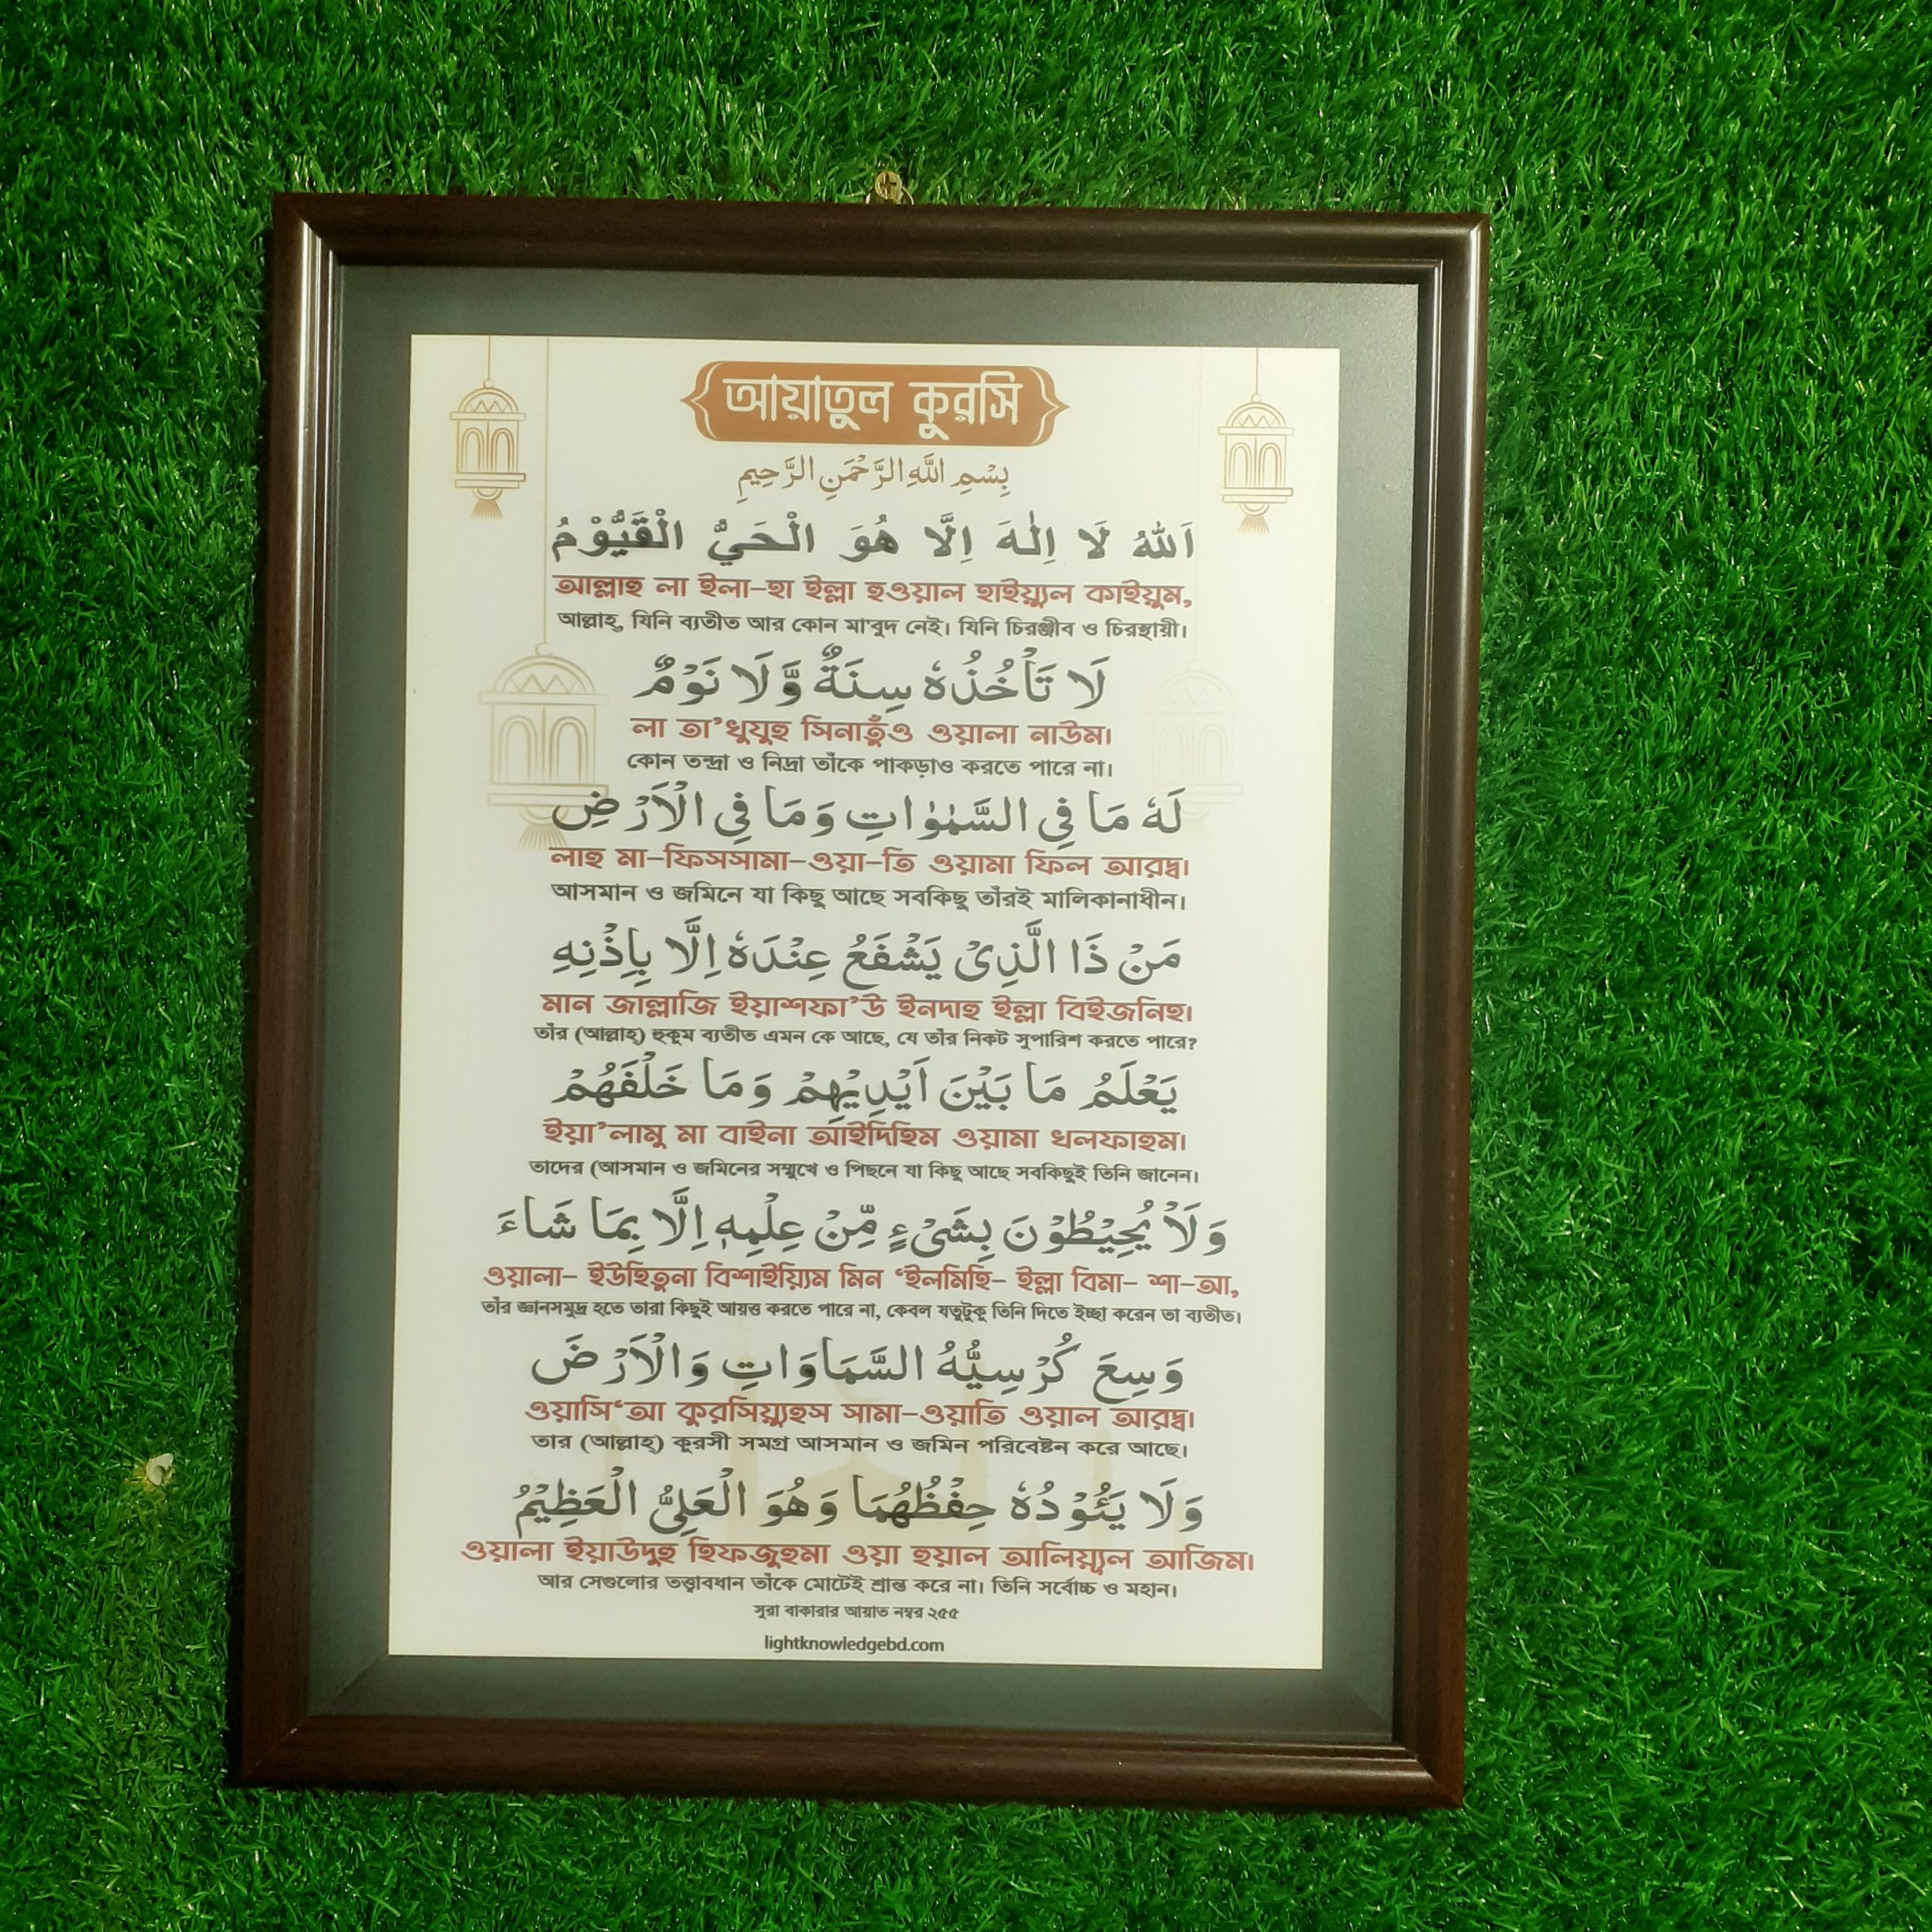 আয়াতুল কুরসি
بِسْمِ اللَّهِ الرَّحْمَنِ الرَّحِيمِ
اَللهُ لَا اِلٰهَ اِلَّا هُوَ الْحَيُّ الْقَيُّوْمُ
আল্লাহু লা ইলা-হা ইল্লা হুওয়াল হাইয়্যুল কাইয়ুম,
আল্লাহ্‌, যিনি ব্যতীত আর কোন মা'বুদ নেই। যিনি চিরঞ্জীব ও চিরস্থায়ী।
لَا تَاْخُذُهٗ سِنَةٌ وَّلَا نَوْمٌ
লা তা’খুযুহু সিনাতুঁও ওয়ালা নাউম।
কোন তন্দ্রা ও নিদ্রা তাঁকে পাকড়াও করতে পারে না।
لَهٗ مَا فِي السَّمٰوٰاتِ وَمَا فِي الْاَرْضِ
লাহু মা-ফিসসামা-ওয়া-তি ওয়ামা ফিল আরদ্ব।
আসমান ও জমিনে যা কিছু আছে সবকিছু তাঁরই মালিকানাধীন।
مَنْ ذَا الَّذِىْ يَشْفَعُ عِنْدَهٗ اِلَّا بِاِذْنِهِ
মান জাল্লাজি ইয়াশফা’উ ইনদাহু ইল্লা বিইজনিহ।
তাঁর (আল্লাহ্‌) হুকুম ব্যতীত এমন কে আছে, যে তাঁর নিকট সুপারিশ করতে পারে?
يَعْلَمُ مَا بَيْنَ اَيْدِيْهِمْ وَمَا خَلْفَهُمْ
ইয়া’লামু মা বাইনা আইদিহিম ওয়ামা খলফাহুম।
তাদের (আসমান ও জমিনের সম্মুখে ও পিছনে যা কিছু আছে সবকিছুই তিনি জানেন।
وَلَاْ يُحِيْطُوْنَ بِشَىْءٍ مِّنْ عِلْمِهٖ اِلَّا بِمَا شَاءَ
ওয়ালা- ইউহিতুনা বিশাইয়্যিম মিন ‘ইলমিহি- ইল্লা বিমা- শা-আ,
তাঁর জ্ঞানসমুদ্র হতে তারা কিছুই আয়ত্ত করতে পারে না, কেবল যতুটুকু তিনি দিতে ইচ্ছা করেন তা ব্যতীত।
وَسِعَ كُرْسِيُّهُ السَّمَاوَاتِ وَالْاَرْضَ
ওয়াসি‘আ কুরসিয়্যুহুস সামা-ওয়াতি ওয়াল আরদ্ব।
তার (আল্লাহ্‌) কুরসী সমগ্র আসমান ও জমিন পরিবেষ্টন করে আছে।
وَلَا يَئُوْدُهٗ حِفْظُهُمَا وَهُوَ الْعَلِىُّ الْعَظِيْمُ
ওয়ালা ইয়াউদুহু হিফজুহুমা ওয়া হুয়াল আলিয়্যুল আজিম।
আর সেগুলোর তত্ত্বাবধান তাঁকে মোটেই শ্রান্ত করে না। তিনি সর্বোচ্চ ও মহান।
সুরা বাকারার আয়াত নম্বর ২৫৫
lightknowledgebd.com